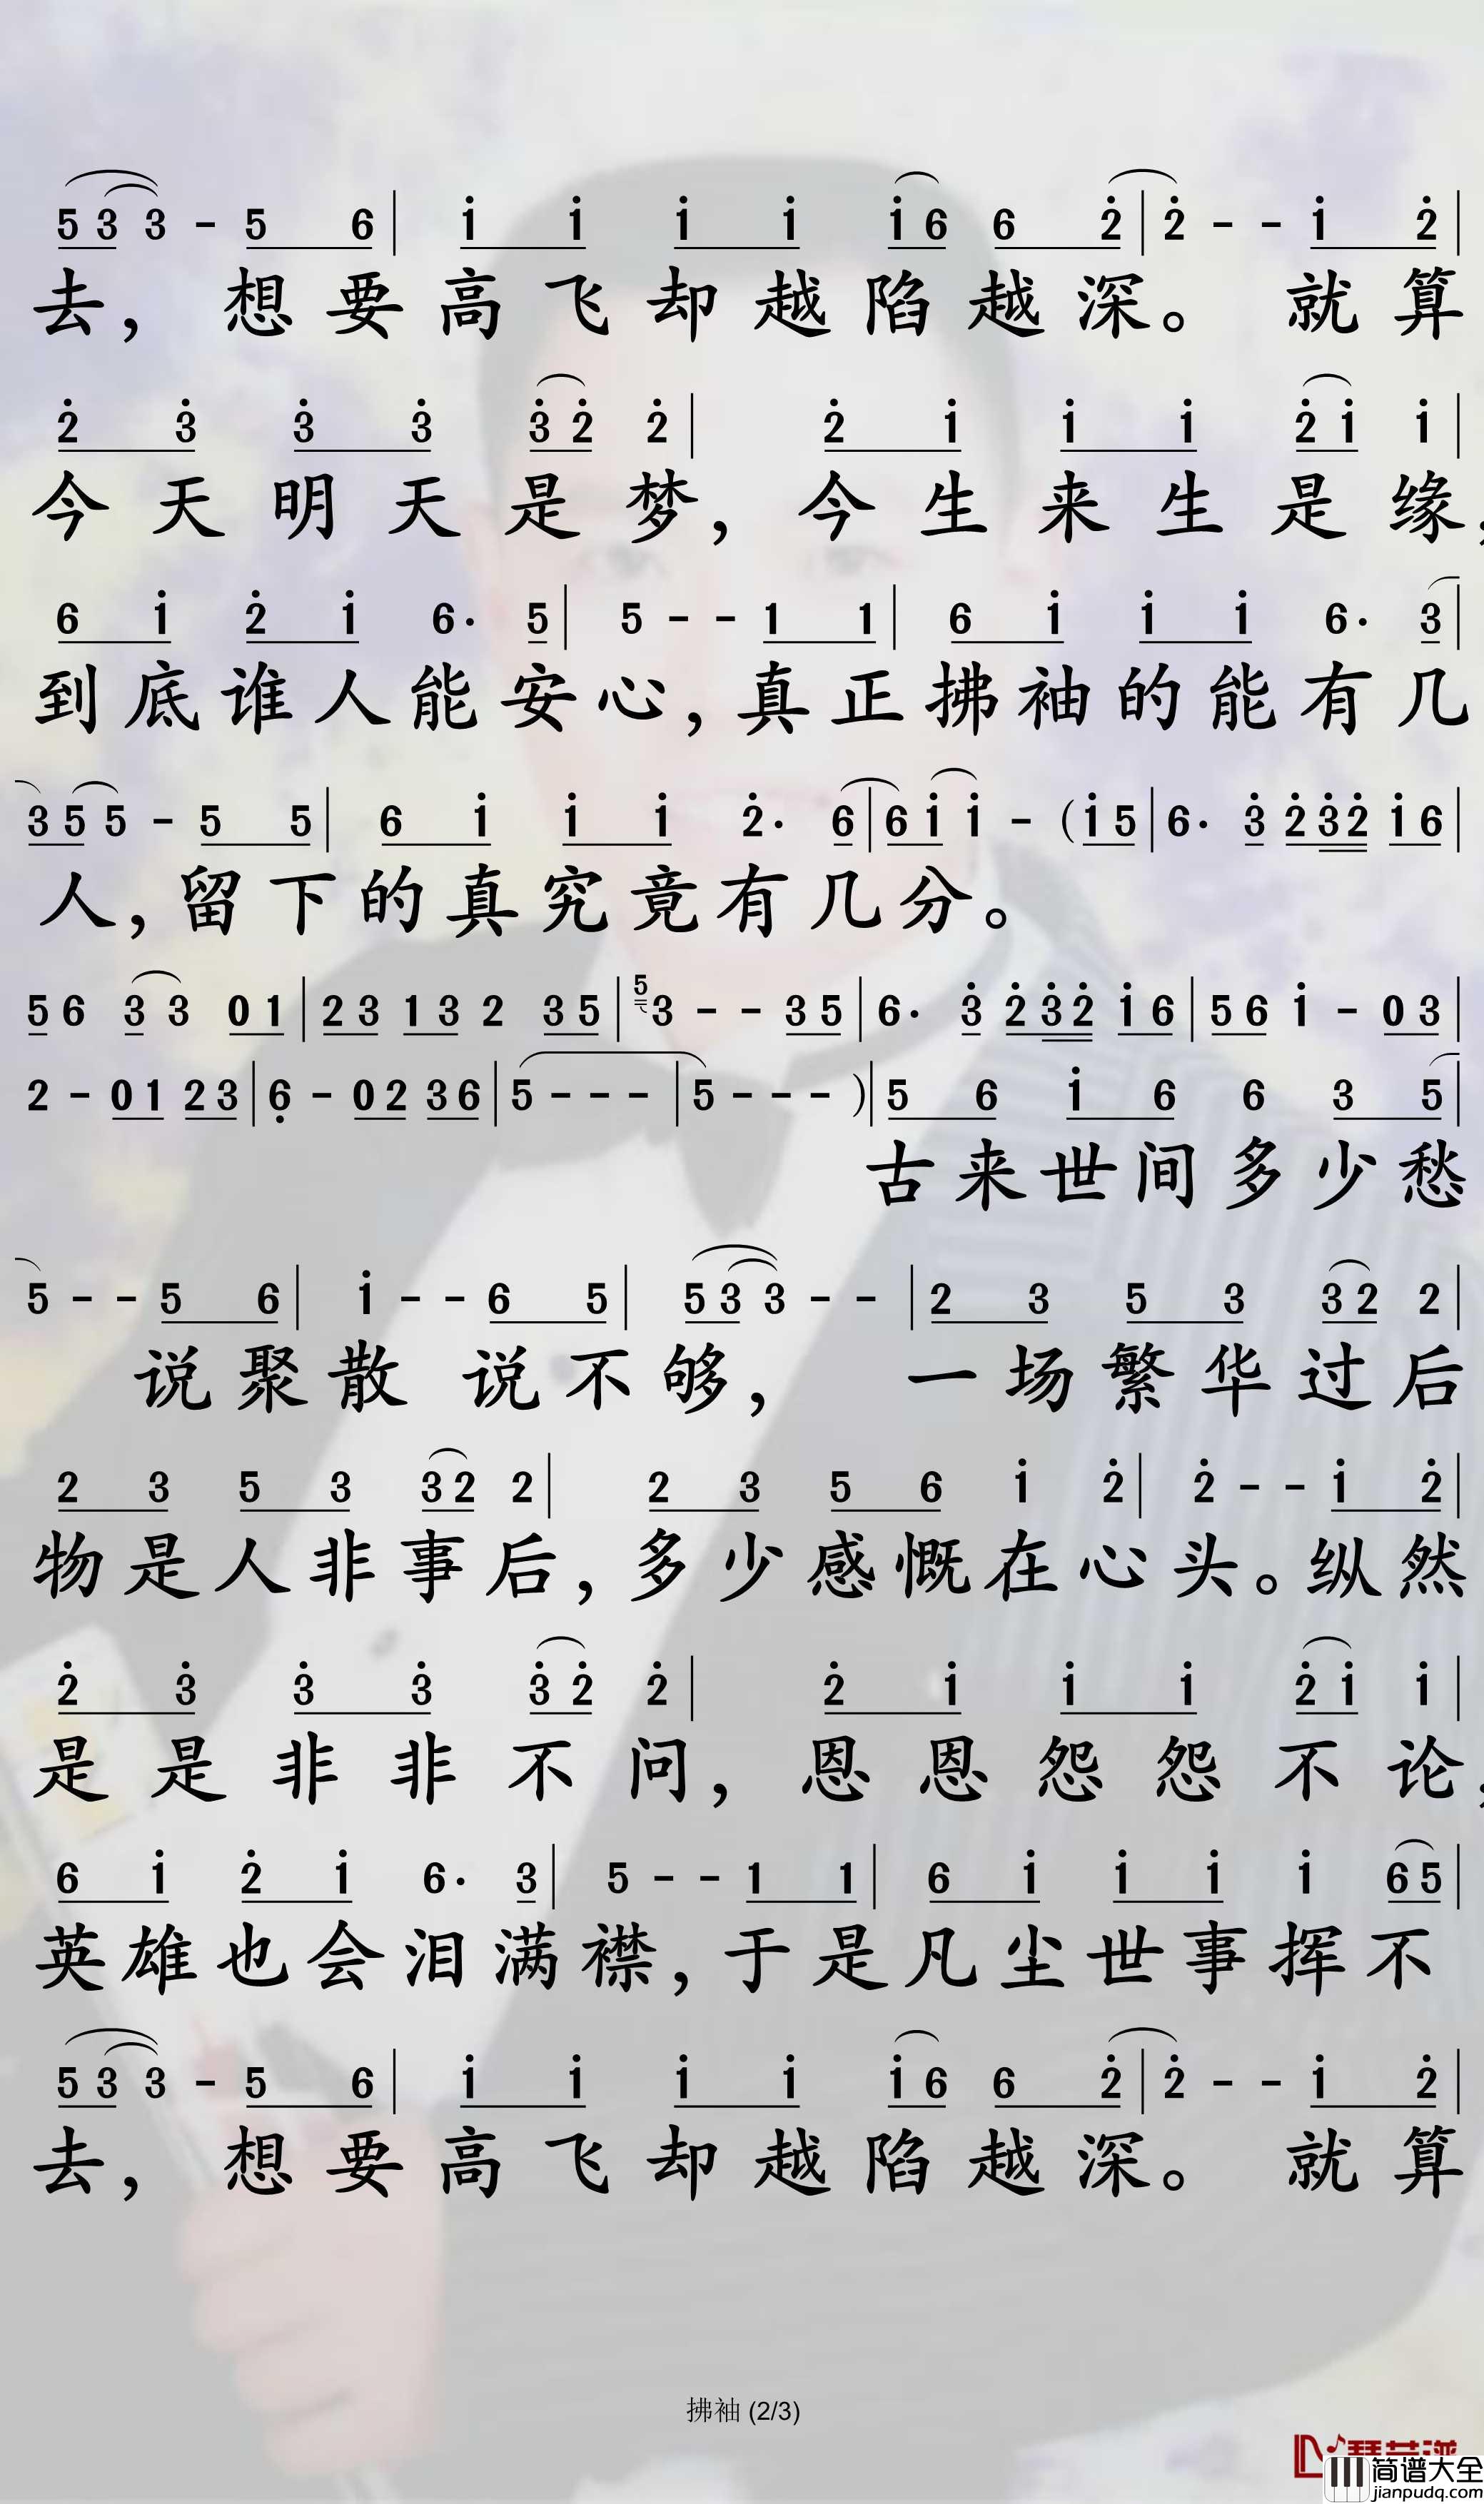 5 3 3 - 5 6 | i i i i i 6 6 2̇ | 2̇ - - i 2̇ |
去， 想要高飞却越陷越深。 就算
2̇ 3̇ 3̇ 3̇ 3̇ 2̇ 2̇ | 2̇ i i i 2̇ i i |
今天明天是梦， 今生来生是缘，
6 i 2̇ i 6· 5 | 5 - - 1 1 | 6 i i i 6· 3 |
到底谁人能安心，真正拂袖的能有几
3 5 5 - 5 5 | 6 i i i 2̇· 6 | 6 i i - (i 5 | 6· 3̇ 2̇ 3̇ 2̇ i 6 |
人，留下的真究竟有几分。
5 6 3 3 0 1 | 2 3 1 3 2 3 5 | 5 3 - - 3 5 | 6· 3̇ 2̇ 3̇ 2̇ i 6 | 5 6 i - 0 3 |
2 - 0 1 2 3 | 6̣ - 0 2 3 6 | 5 - - - | 5 - - - ) | 5 6 i 6 6 3 5 |
古来世间多少愁
5 - - 5 6 | i - - 6 5 | 5 3 3 - - | 2 3 5 3 3 2 2 |
说聚散 说不够， 一场繁华过后
2 3 5 3 3 2 2 | 2 3 5 6 i 2̇ | 2̇ - - i 2̇ |
物是人非事后，多少感慨在心头。纵然
2̇ 3̇ 3̇ 3̇ 3̇ 2̇ 2̇ | 2̇ i i i 2̇ i i |
是是非非不问， 恩恩怨怨不论，
6 i 2̇ i 6· 3 | 5 - - 1 1 | 6 i i i i 6 5 |
英雄也会泪满襟，于是凡尘世事挥不
5 3 3 - 5 6 | i i i i i 6 6 2̇ | 2̇ - - i 2̇ |
去， 想要高飞却越陷越深。 就算
拂袖 (2/3)
简谱大全
jianpudq.com